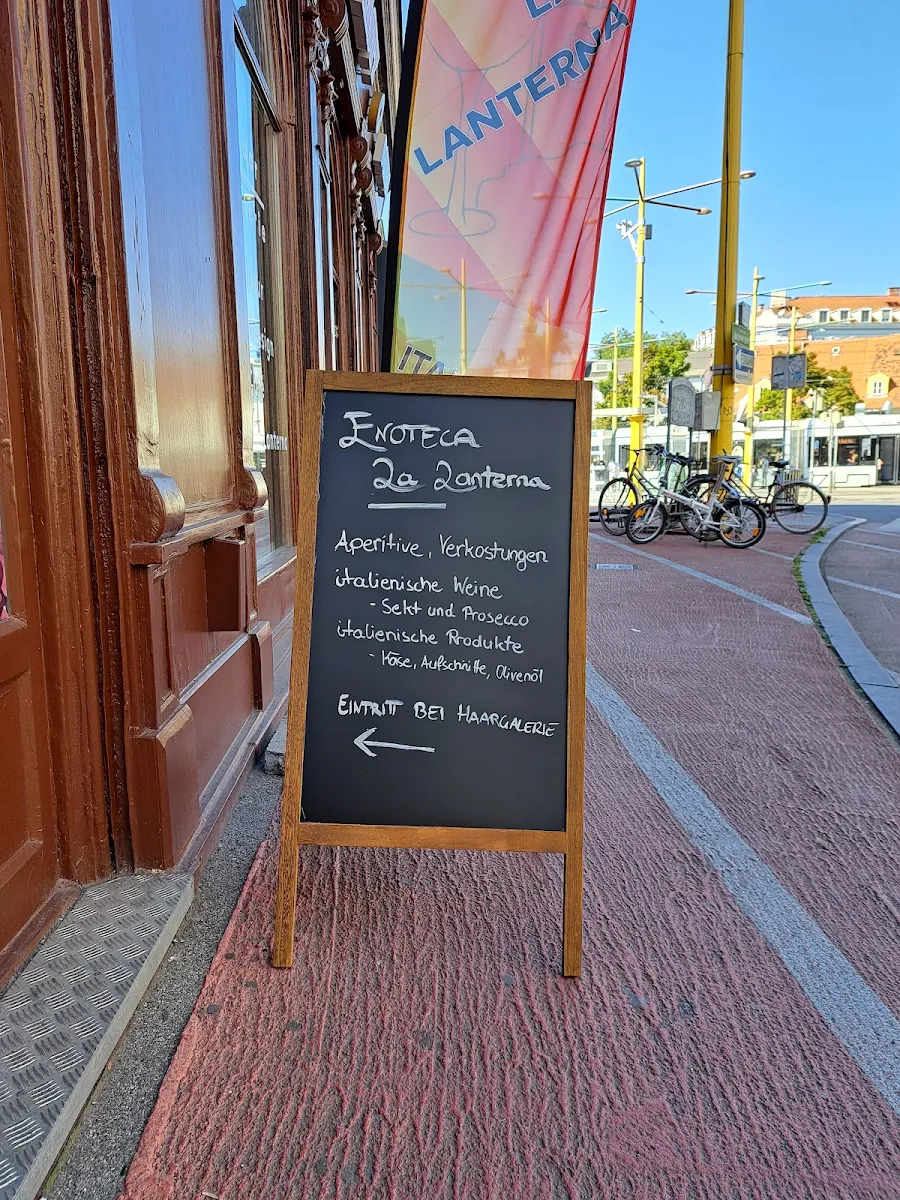 LA
LANTERNA
ITA
Enoteca
La Lanterna
Aperitive, Verkostungen
italienische Weine
- Sekt und Prosecco
italienische Produkte
- Käse, Aufschnitte, Olivenöl
EINTRITT BEI HAARGALERIE